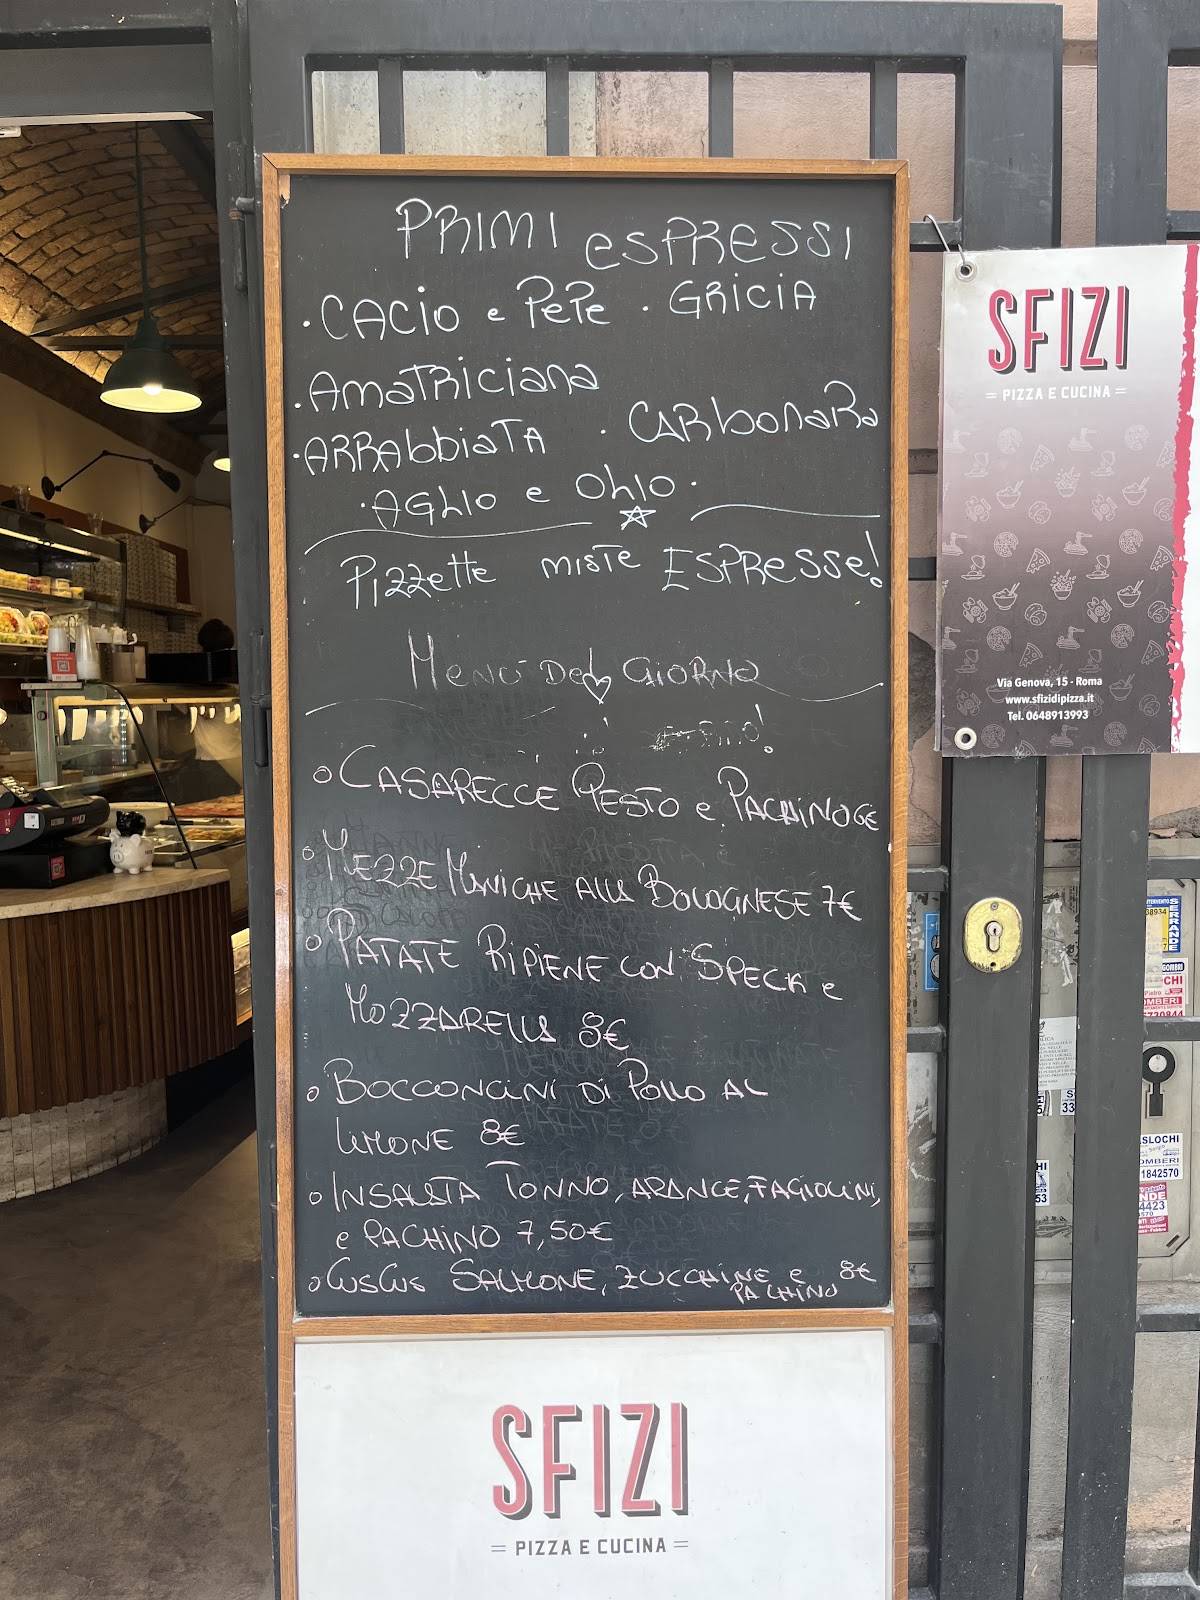 PRIMI ESPRESSI
· CACIO e PePe · GRICIA
· AMATRICIANA
· ARRAbbIATA · CARbONARA
· AGLIO e OhIO ·
PIZZette MISTE ESPRESSE!
MENÚ DEL GIORNO
CASARECCE PESTO e PACHINO 6€
MEZZE MANICHE ALLA BOLOGNESE 7€
PATATE RIPIENE CON SPECK e
MOZZARELLA 8€
BOCCONCINI DI POLLO AL
LIMONE 8€
INSALATA TONNO, ARANCE, FAGIOLINI,
e PACHINO 7,50€
CUSCUS SALMONE, ZUCCHINE e 8€
PACHINO
SFIZI
= PIZZA E CUCINA =
SFIZI
= PIZZA E CUCINA =
Via Genova, 15 - Roma
www.sfizidipizza.it
Tel. 0648913993
SERRANDE
ASLOCHI
OMBERI
1842570